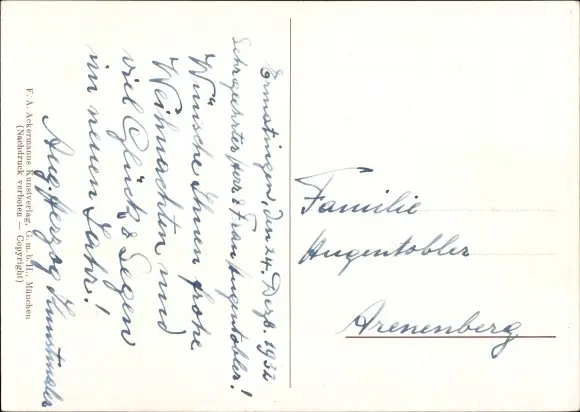 Ermatingen, den 24. Dezb. 1932
Sehrgeehrter Herr & Frau Hugentobler!
Wünsche Ihnen frohe
Weihnachten und
viel Glück & Segen
im neuen Jahr!
Aug. Herzog Kunstmaler
F. A. Ackermanns Kunstverlag, G. m. b. H., München
(Nachdruck verboten — Copyright)
Familie
Hugentobler
Arenenberg